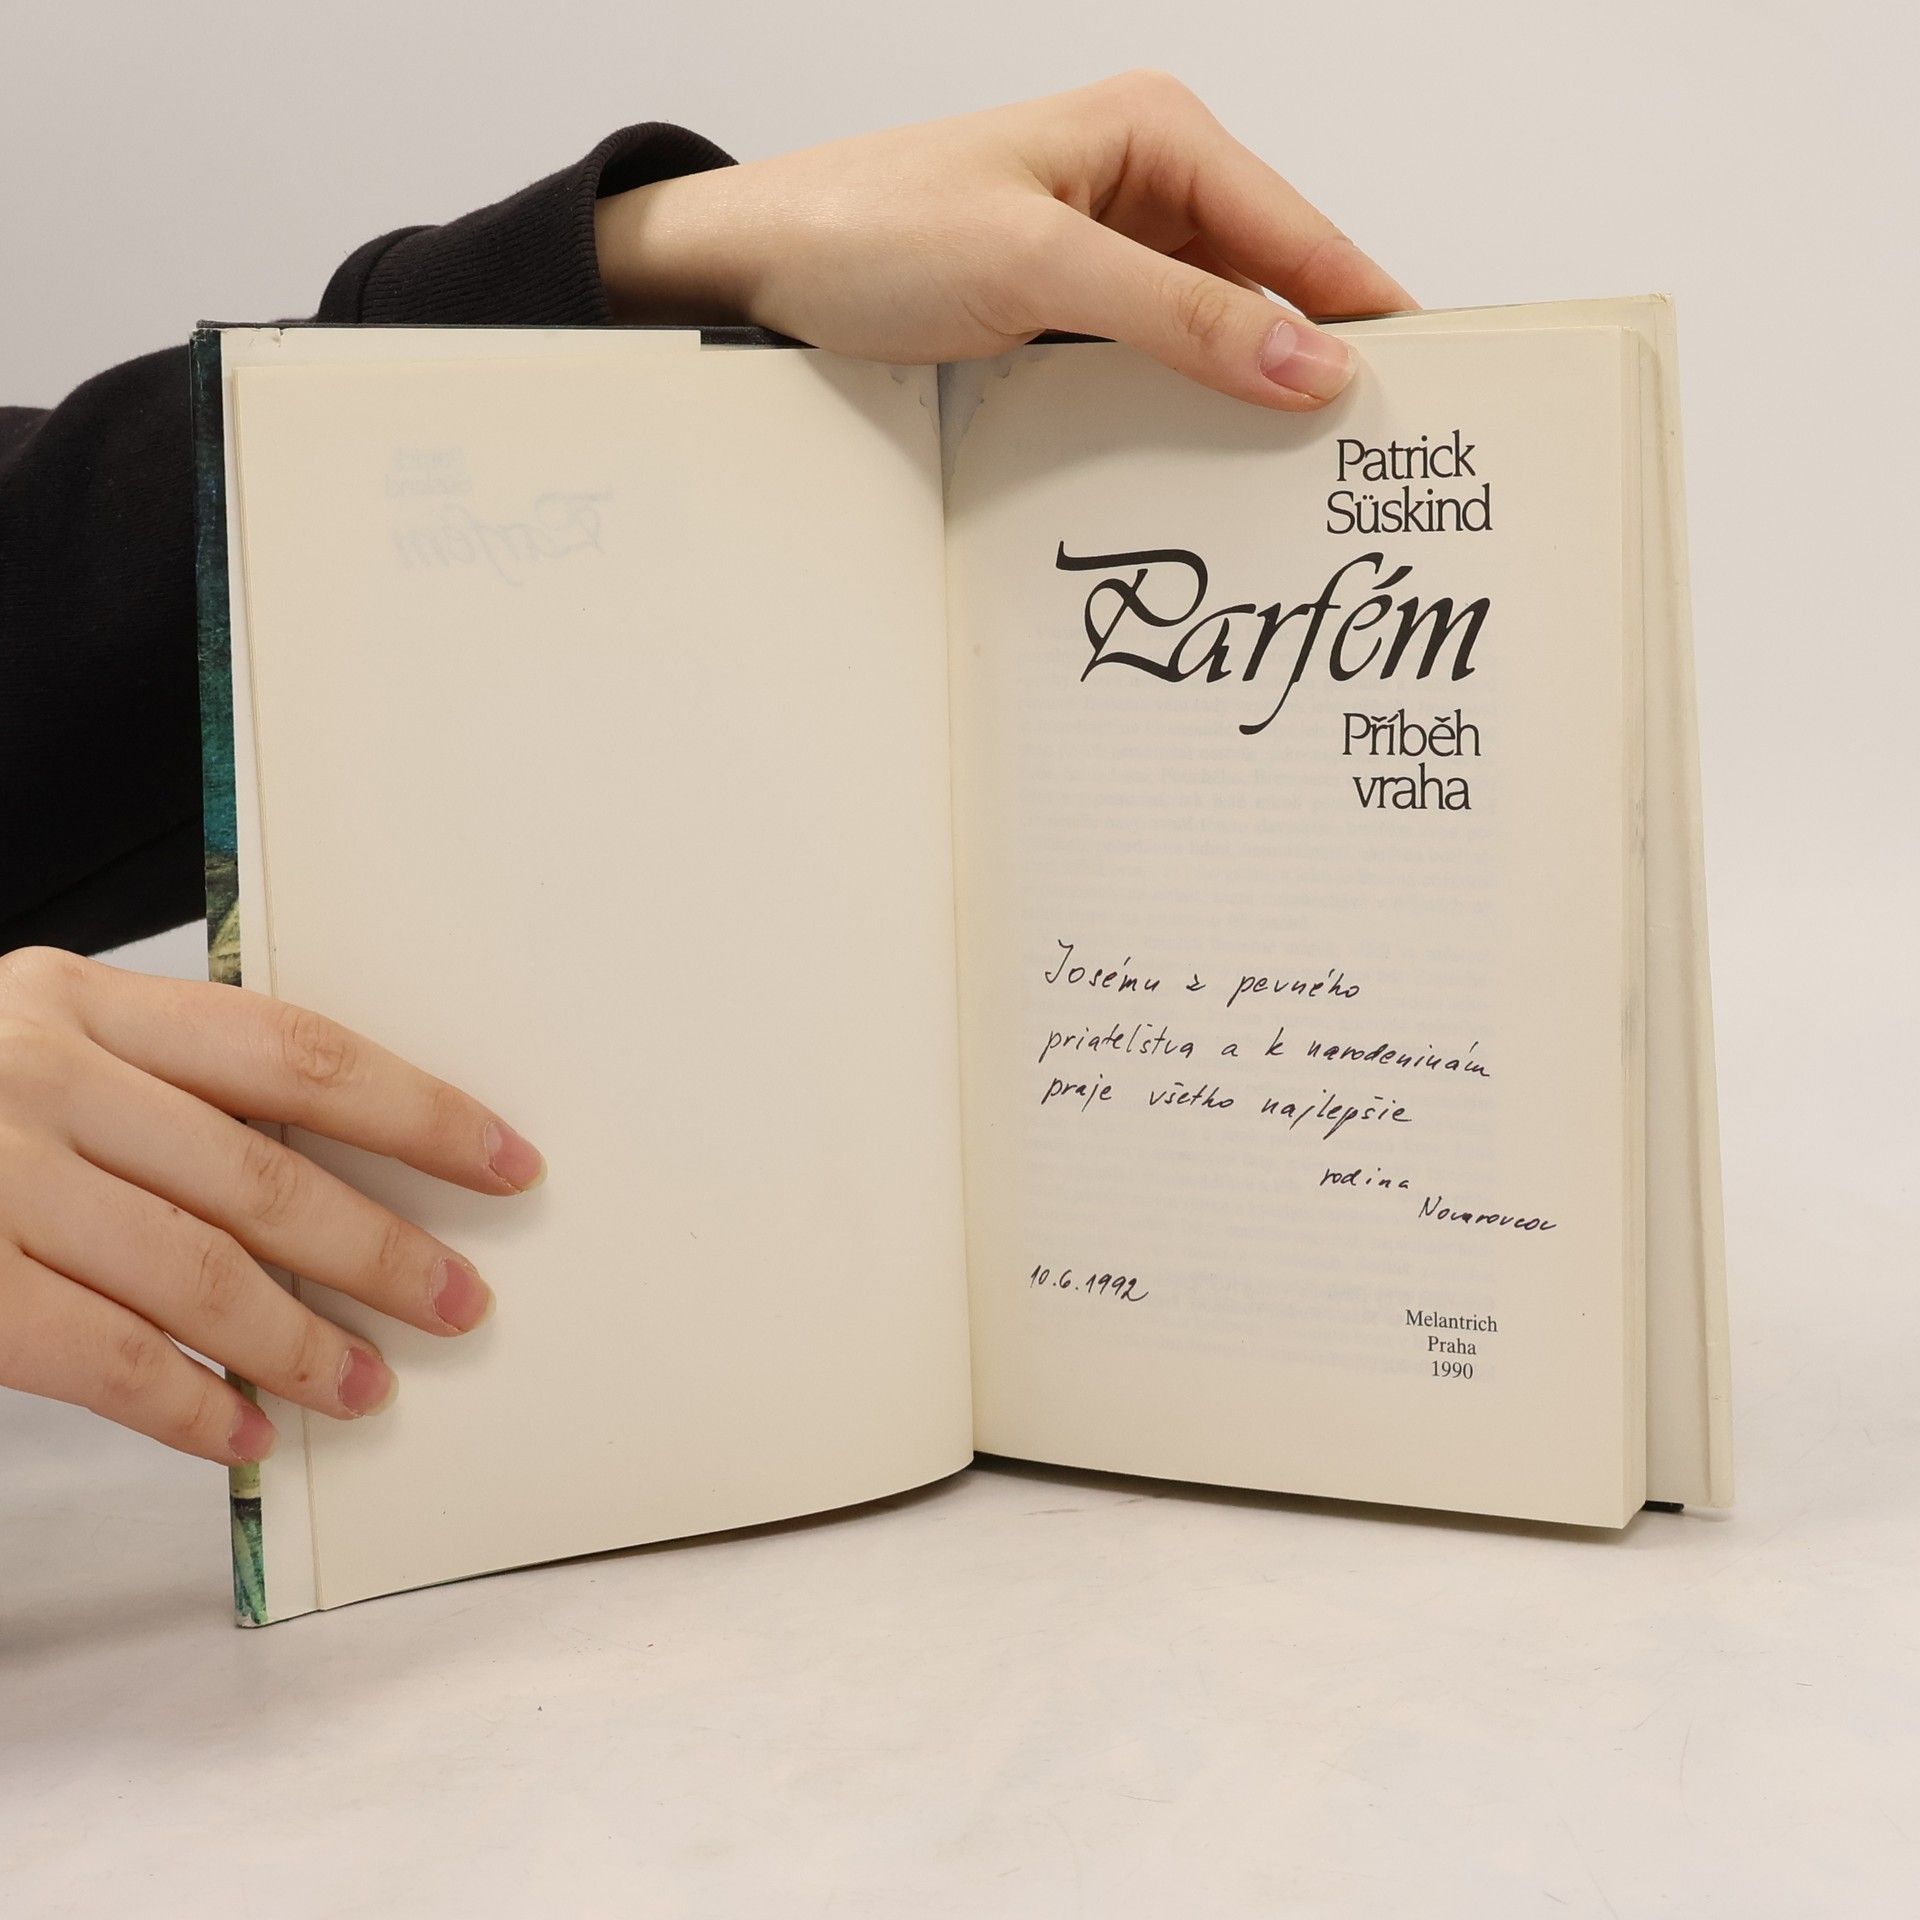 Patrick
Süskind
Parfém
Příběh
vraha
Josému z pevného
priatelštva a k narodeninám
praje všetko najlepšie
rodina
10.6.1992
Melantrich
Praha
1990